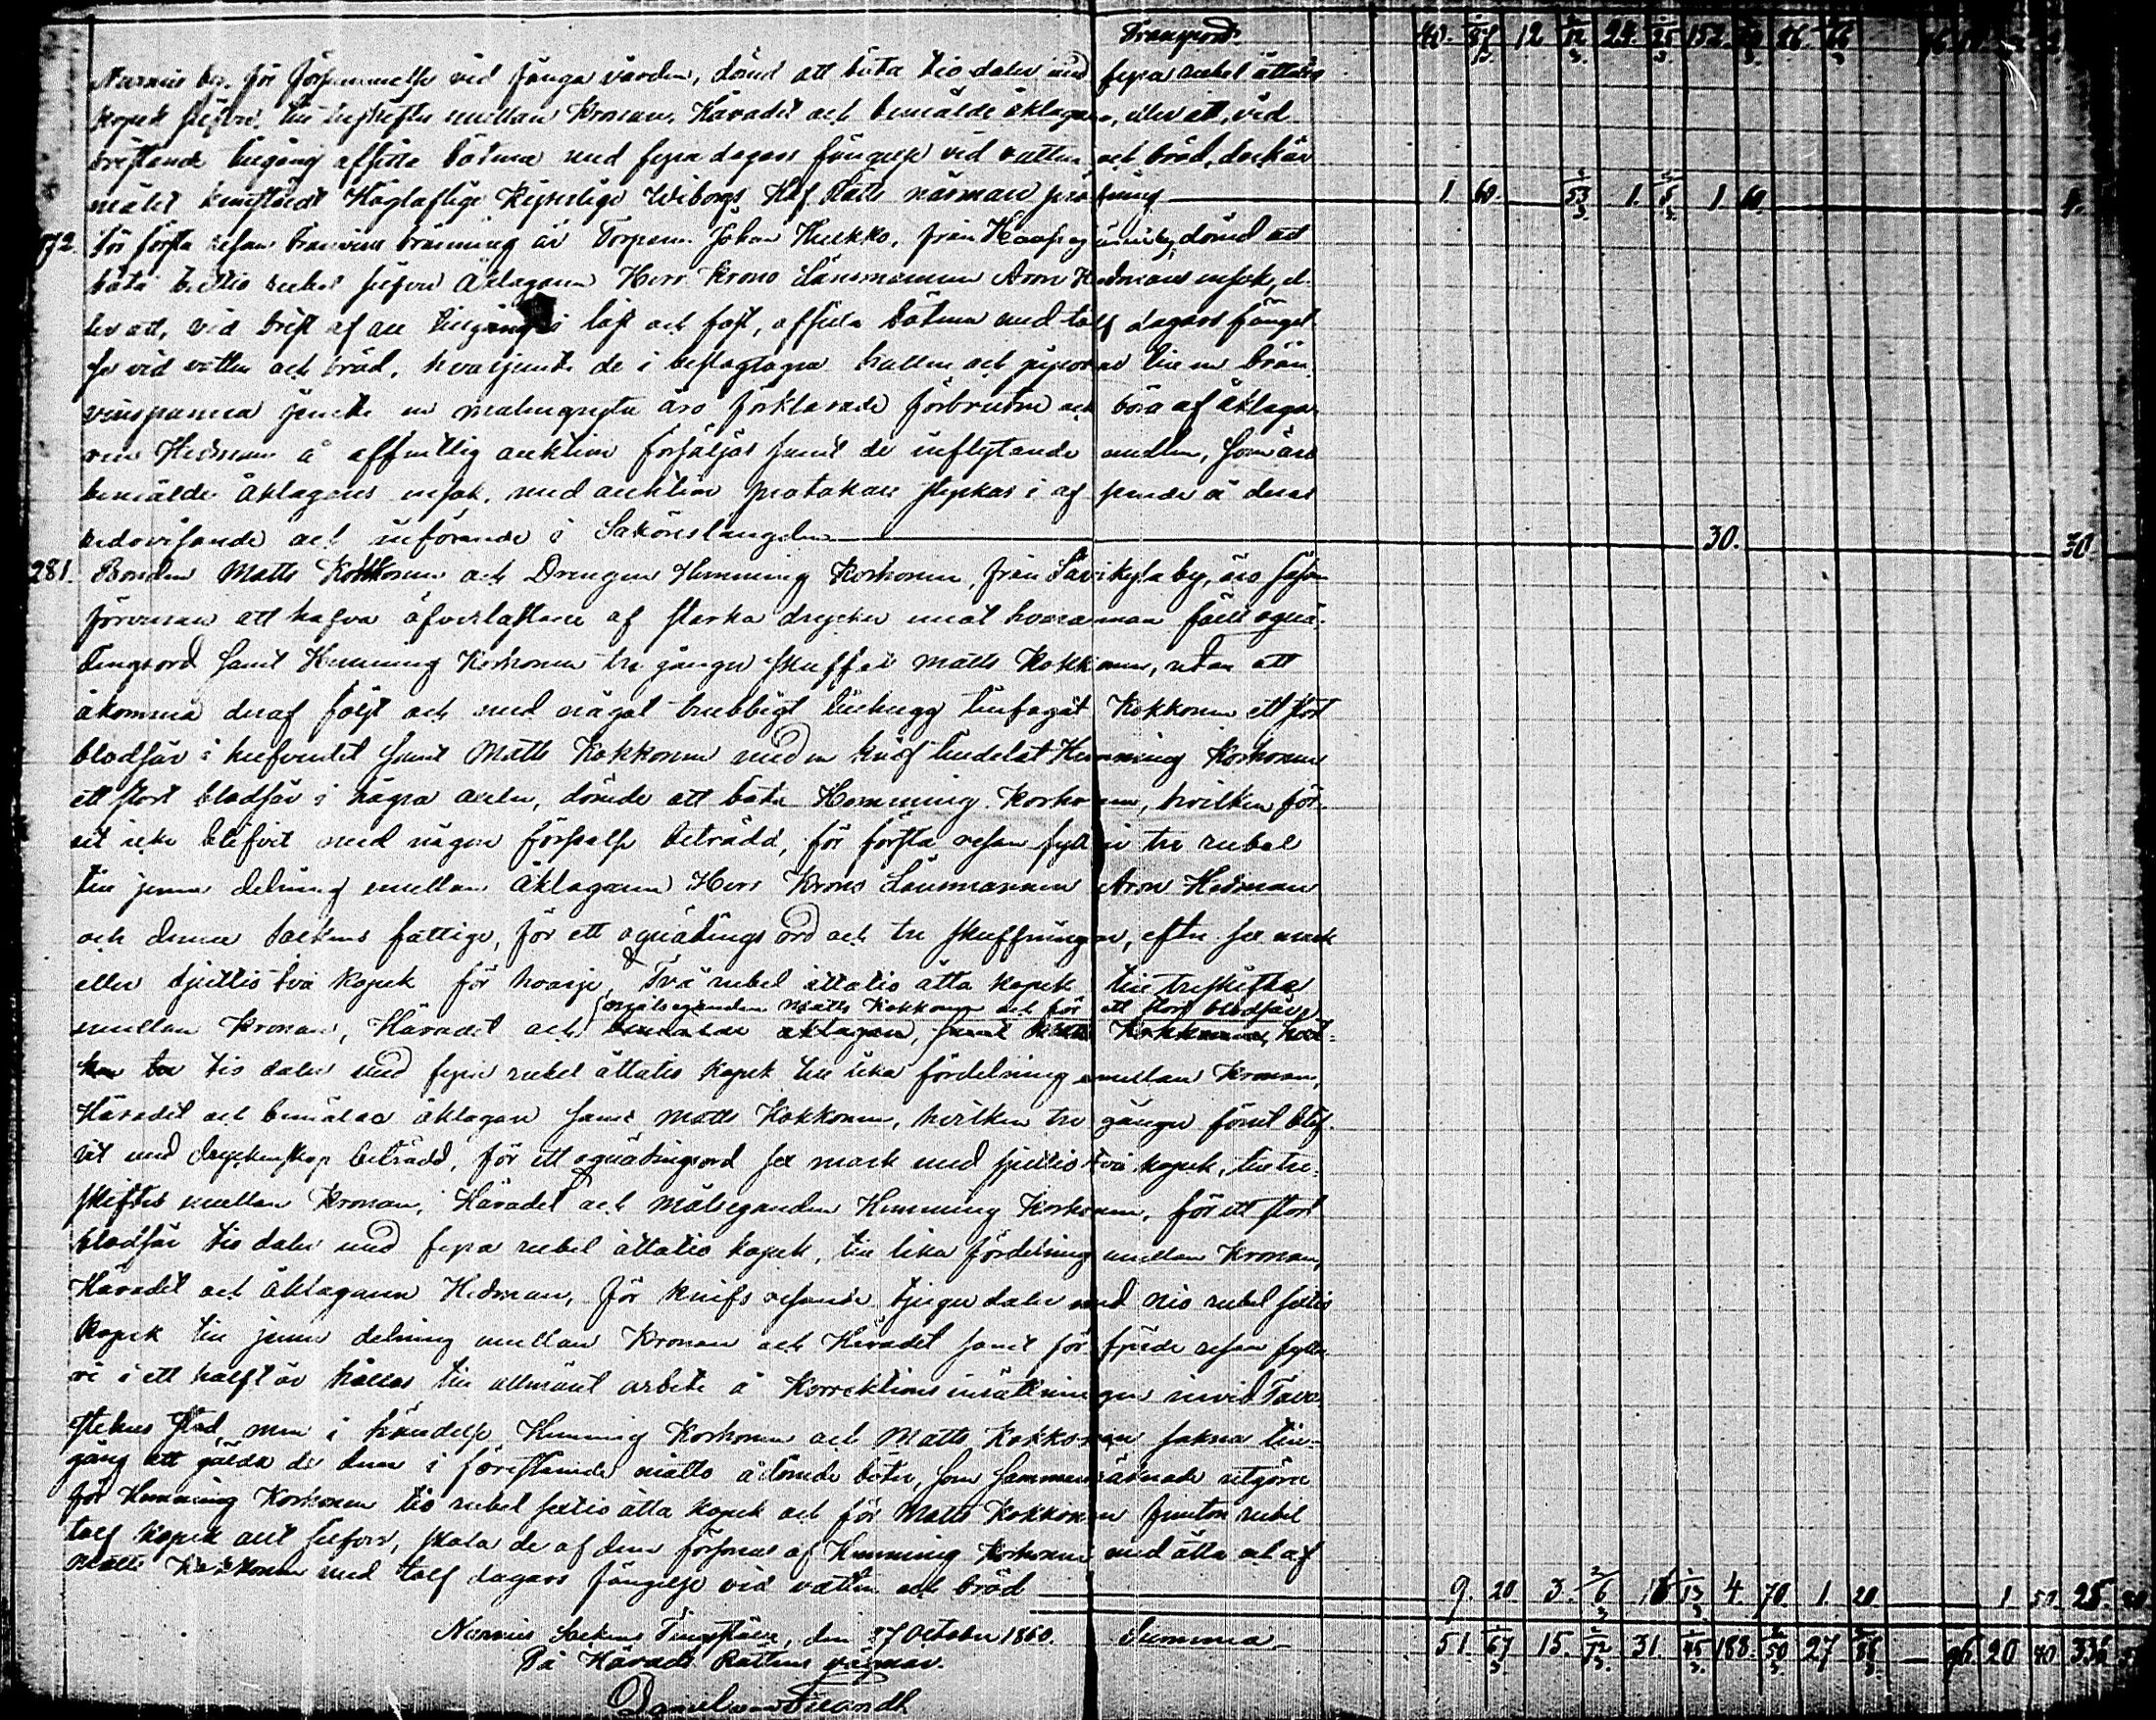 Transport. 40. 87 12 24. 152. 46. 66
Nurmis by, för försummelse vid fånga vården, dömd att böta tio daler med fyra rubel åttatio
kopek silfver, till treskiftes mellan Kronan, Häradet och bemälde åklagare, eller att, vid
bristande tillgång afsitta böterna med fyra dagars fängelse vid vatten och bröd, dock är
målet Höglaflige Kejserlige Wiborgs Hof Rätts närmare pröfning 1 60. 53 1. 1 60.
172. För första resan bränvins bränning är Torparen Johan Kukko, från by, dömd att
böta trettio rubel silfver åklagaren Herr Krono Länsmannen Aron Hedmans ensak, el-
ler att, vid brist af all tillgång i löst och fast, afsitta böterna med tolf dagars fängel-
se vid vatten och bröd, hvarjemte de i beslagtagna hatten och piporna till en brän-
vinspanna jemte en äro förklarade förbrutne och böra af åklaga-
ren Hedman å offentlig auktion försäljas samt de inflytande medlen, som äro
bemälde åklagares ensak, med auktions protokoll styrkas i af seende å deras
redovisande och införande i Saköreslängden 30. 30
281. Bonden Matts Kokkonen och Drengen Hemming Korhonen, från Savikylä by, äro såsom
förvunne att hafva öfverlastade af starka drycker emot hvarannan fällt oqvä-
dingsord samt Hemming Korhonen tre gånger skuffat Matts Kokkonen, utan att
åkomma deraf följt och med något trubbigt tillhugg tillfogat Kokkonen ett stort
blodsår i hufvudet samt Matts Kokkonen med en knif tilldelat Hemming Korhonen
ett stort blodsår i högra axeln, dömde att böta Hemming Korhonen, hvilken för-
ut icke blifvit med någon förseelse beträdd, för första resan fylleri tre rubel
till jemn delning emellan åklagaren Herr Krono Länsmannen Aron Hedman
och denna Sockens fattige, för ett oqvädings ord och tre skuffningar, efter sex mark
eller sjuttio två kopek för hvarje, Två rubel åttatio åtta kopek till treskiftes
målseganden Matts Kokkonen och för ett stort blodsår
emellan Kronan, Häradet och bemälde åklagare, samt Matts Kokkonen, hvil-
ken tio daler med fyra rubel åttatio kopek till lika fördelning emellan Kronan,
Häradet och bemälde åklagare samt Matts Kokkonen, hvilken tre gånger förut blif-
vit med dryckenskap beträdd, för ett oqvädingsord sex mark med sjuttio två kopek, till tre-
skiftes mellan Kronan, Häradet och målseganden Hemming Korhonen, för ett stort
blodsår tio daler med fyra rubel åttatio kopek, till lika fördelning mellan Kronan,
Häradet och åklagaren Hedman, för knifs resande tjugu daler med nio rubel sextio
kopek till jemn delning mellan Kronan och Häradet samt för fjerde resan fylle-
ri i ett halft år hållas till allmänt arbete å Korrektions inrättningen invid Tava-
stehus stad, men i händelse Hemming Korhonen och Matts Kokkonen sakna till-
gång att gälda de dem i förestående måtto ådömde böter, som sammanräknade utgöra
för Hemming Korhonen tio rubel sextio åtta kopek och för Matts Kokkonen femton rubel
tolf kopek allt silfver, skola de af dem försonas af Hemming Korhonen med åtta och af
Matts Kokkonen med tolf dagars fängelse vid vatten och bröd 9. 20 3. 6 4. 70 1. 20 1 50. 25.
Nurmis Sockens Tingställe, den 27 October 1860. Summa 51. 67 15. 72 31. 45 188. 50 27 86 96 20 40 336
På Härads Rättens vägnar.